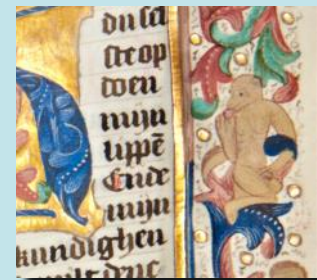 du salt
dicop
doen
mijn
lippē
Ende
mijn
kundighen